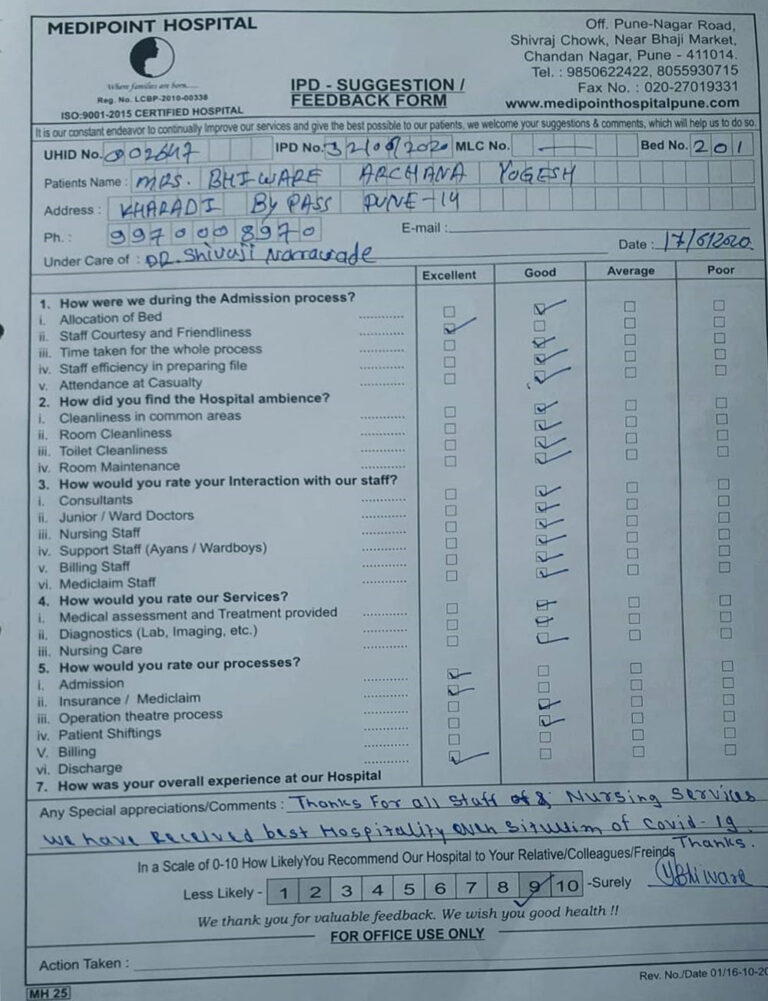 MEDIPOINT HOSPITAL
Where families are born.....
Reg. No. LCBP-2010-00338
ISO:9001-2015 CERTIFIED HOSPITAL
IPD - SUGGESTION /
FEEDBACK FORM
Off. Pune-Nagar Road,
Shivraj Chowk, Near Bhaji Market,
Chandan Nagar, Pune - 411014.
Tel. : 9850622422, 8055930715
Fax No. : 020-27019331
www.medipointhospitalpune.com
It is our constant endeavor to continually Improve our services and give the best possible to our patients, we welcome your suggestions & comments, which will help us to do so.
UHID No. 002647 IPD No. MLC No. — Bed No. 201
Patients Name : MRS. BHIWARE ARCHANA YOGESH
Address : KHARADI By PASS PUNE-14
Ph. : 9970008970 E-mail :
Under Care of : DR. Shivaji Date : 17/6/2020.
Excellent Good Average Poor
1. How were we during the Admission process?
i. Allocation of Bed
ii. Staff Courtesy and Friendliness
iii. Time taken for the whole process
iv. Staff efficiency in preparing file
v. Attendance at Casualty
2. How did you find the Hospital ambience?
i. Cleanliness in common areas
ii. Room Cleanliness
iii. Toilet Cleanliness
iv. Room Maintenance
3. How would you rate your Interaction with our staff?
i. Consultants
ii. Junior / Ward Doctors
iii. Nursing Staff
iv. Support Staff (Ayans / Wardboys)
v. Billing Staff
vi. Mediclaim Staff
4. How would you rate our Services?
i. Medical assessment and Treatment provided
ii. Diagnostics (Lab, Imaging, etc.)
iii. Nursing Care
5. How would you rate our processes?
i. Admission
ii. Insurance / Mediclaim
iii. Operation theatre process
iv. Patient Shiftings
V. Billing
vi. Discharge
7. How was your overall experience at our Hospital
Any Special appreciations/Comments : Thanks For all Staff of & Nursing Services
We have Received best Hospitality even of Covid-19.
Thanks.
In a Scale of 0-10 How LikelyYou Recommend Our Hospital to Your Relative/Colleagues/Freinds
Less Likely - 1 2 3 4 5 6 7 8 9 10 -Surely YBhiware
We thank you for valuable feedback. We wish you good health !!
FOR OFFICE USE ONLY
Action Taken :
Rev. No./Date 01/16-10-20
MH 25